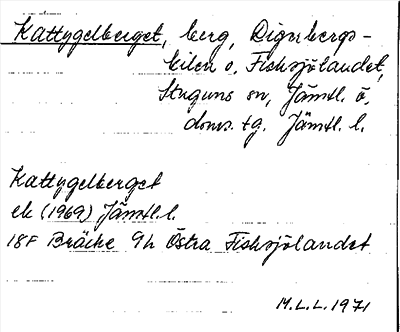 Kattygelberget, berg, Digerbergs-
kilen o. Fisksjölandet,
Stuguns sn, Jämtl. ö.
doms. tg. Jämtl. l.
Kattygelberget
ek (1969) Jämtl. l.
18F Bräcke 9h Östra Fisksjölandet
M.L.L. 1971